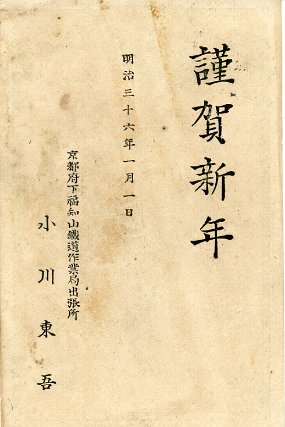 謹賀新年
明治三十六年一月一日
京都府下福知山鐵道作業局出張所
小川東吾